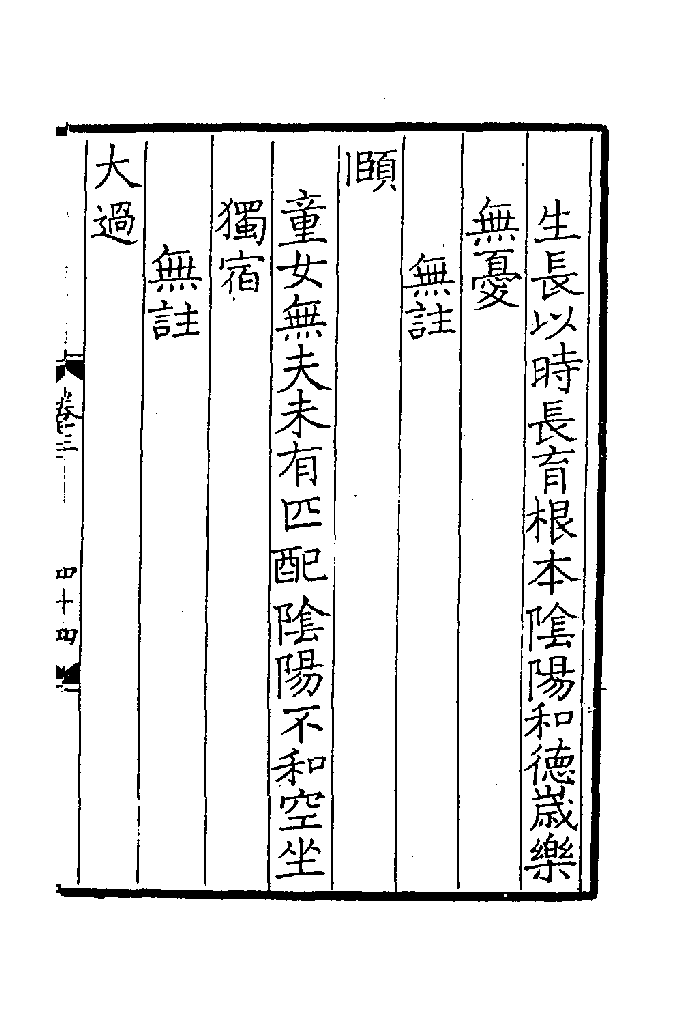 生長以時長育根本陰陽和德歳樂
無憂
無註
頤
童女無夫未有匹配陰陽不和空坐
獨宿
無註
大過
卷三
四十四